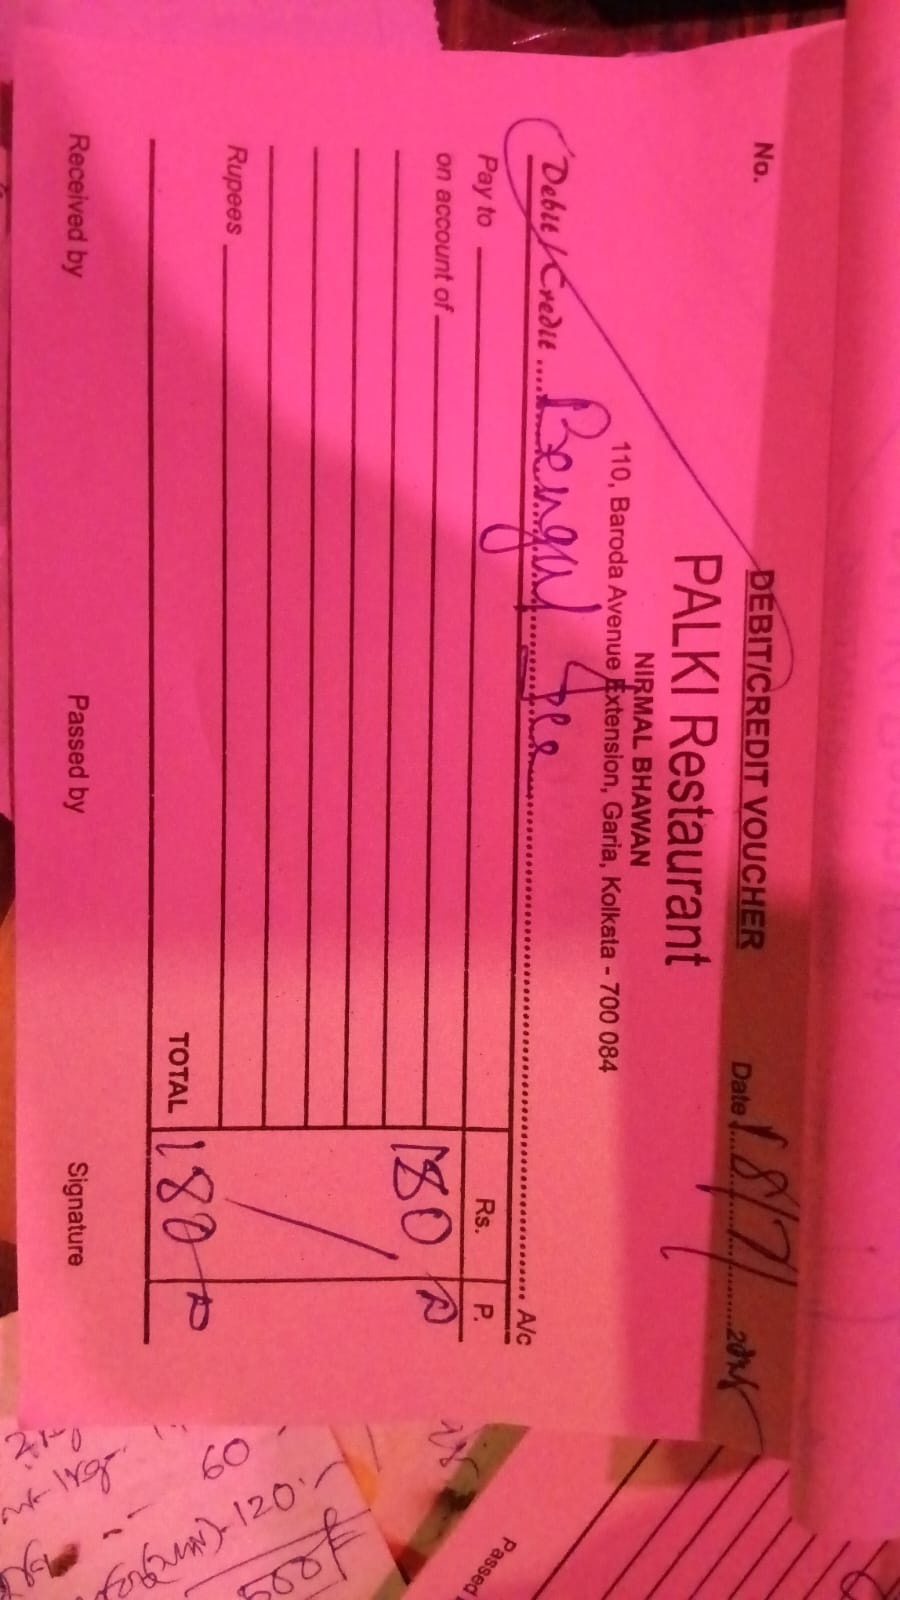 DEBIT/CREDIT VOUCHER
No. Date 18/7/
PALKI Restaurant
NIRMAL BHAWAN
110, Baroda Avenue Extension, Garia, Kolkata - 700 084
Debit / Credit Bengal Ice A/c
Pay to Rs. P.
on account of 180
Rupees
TOTAL 180
Received by Passed by Signature
60
120
Passed